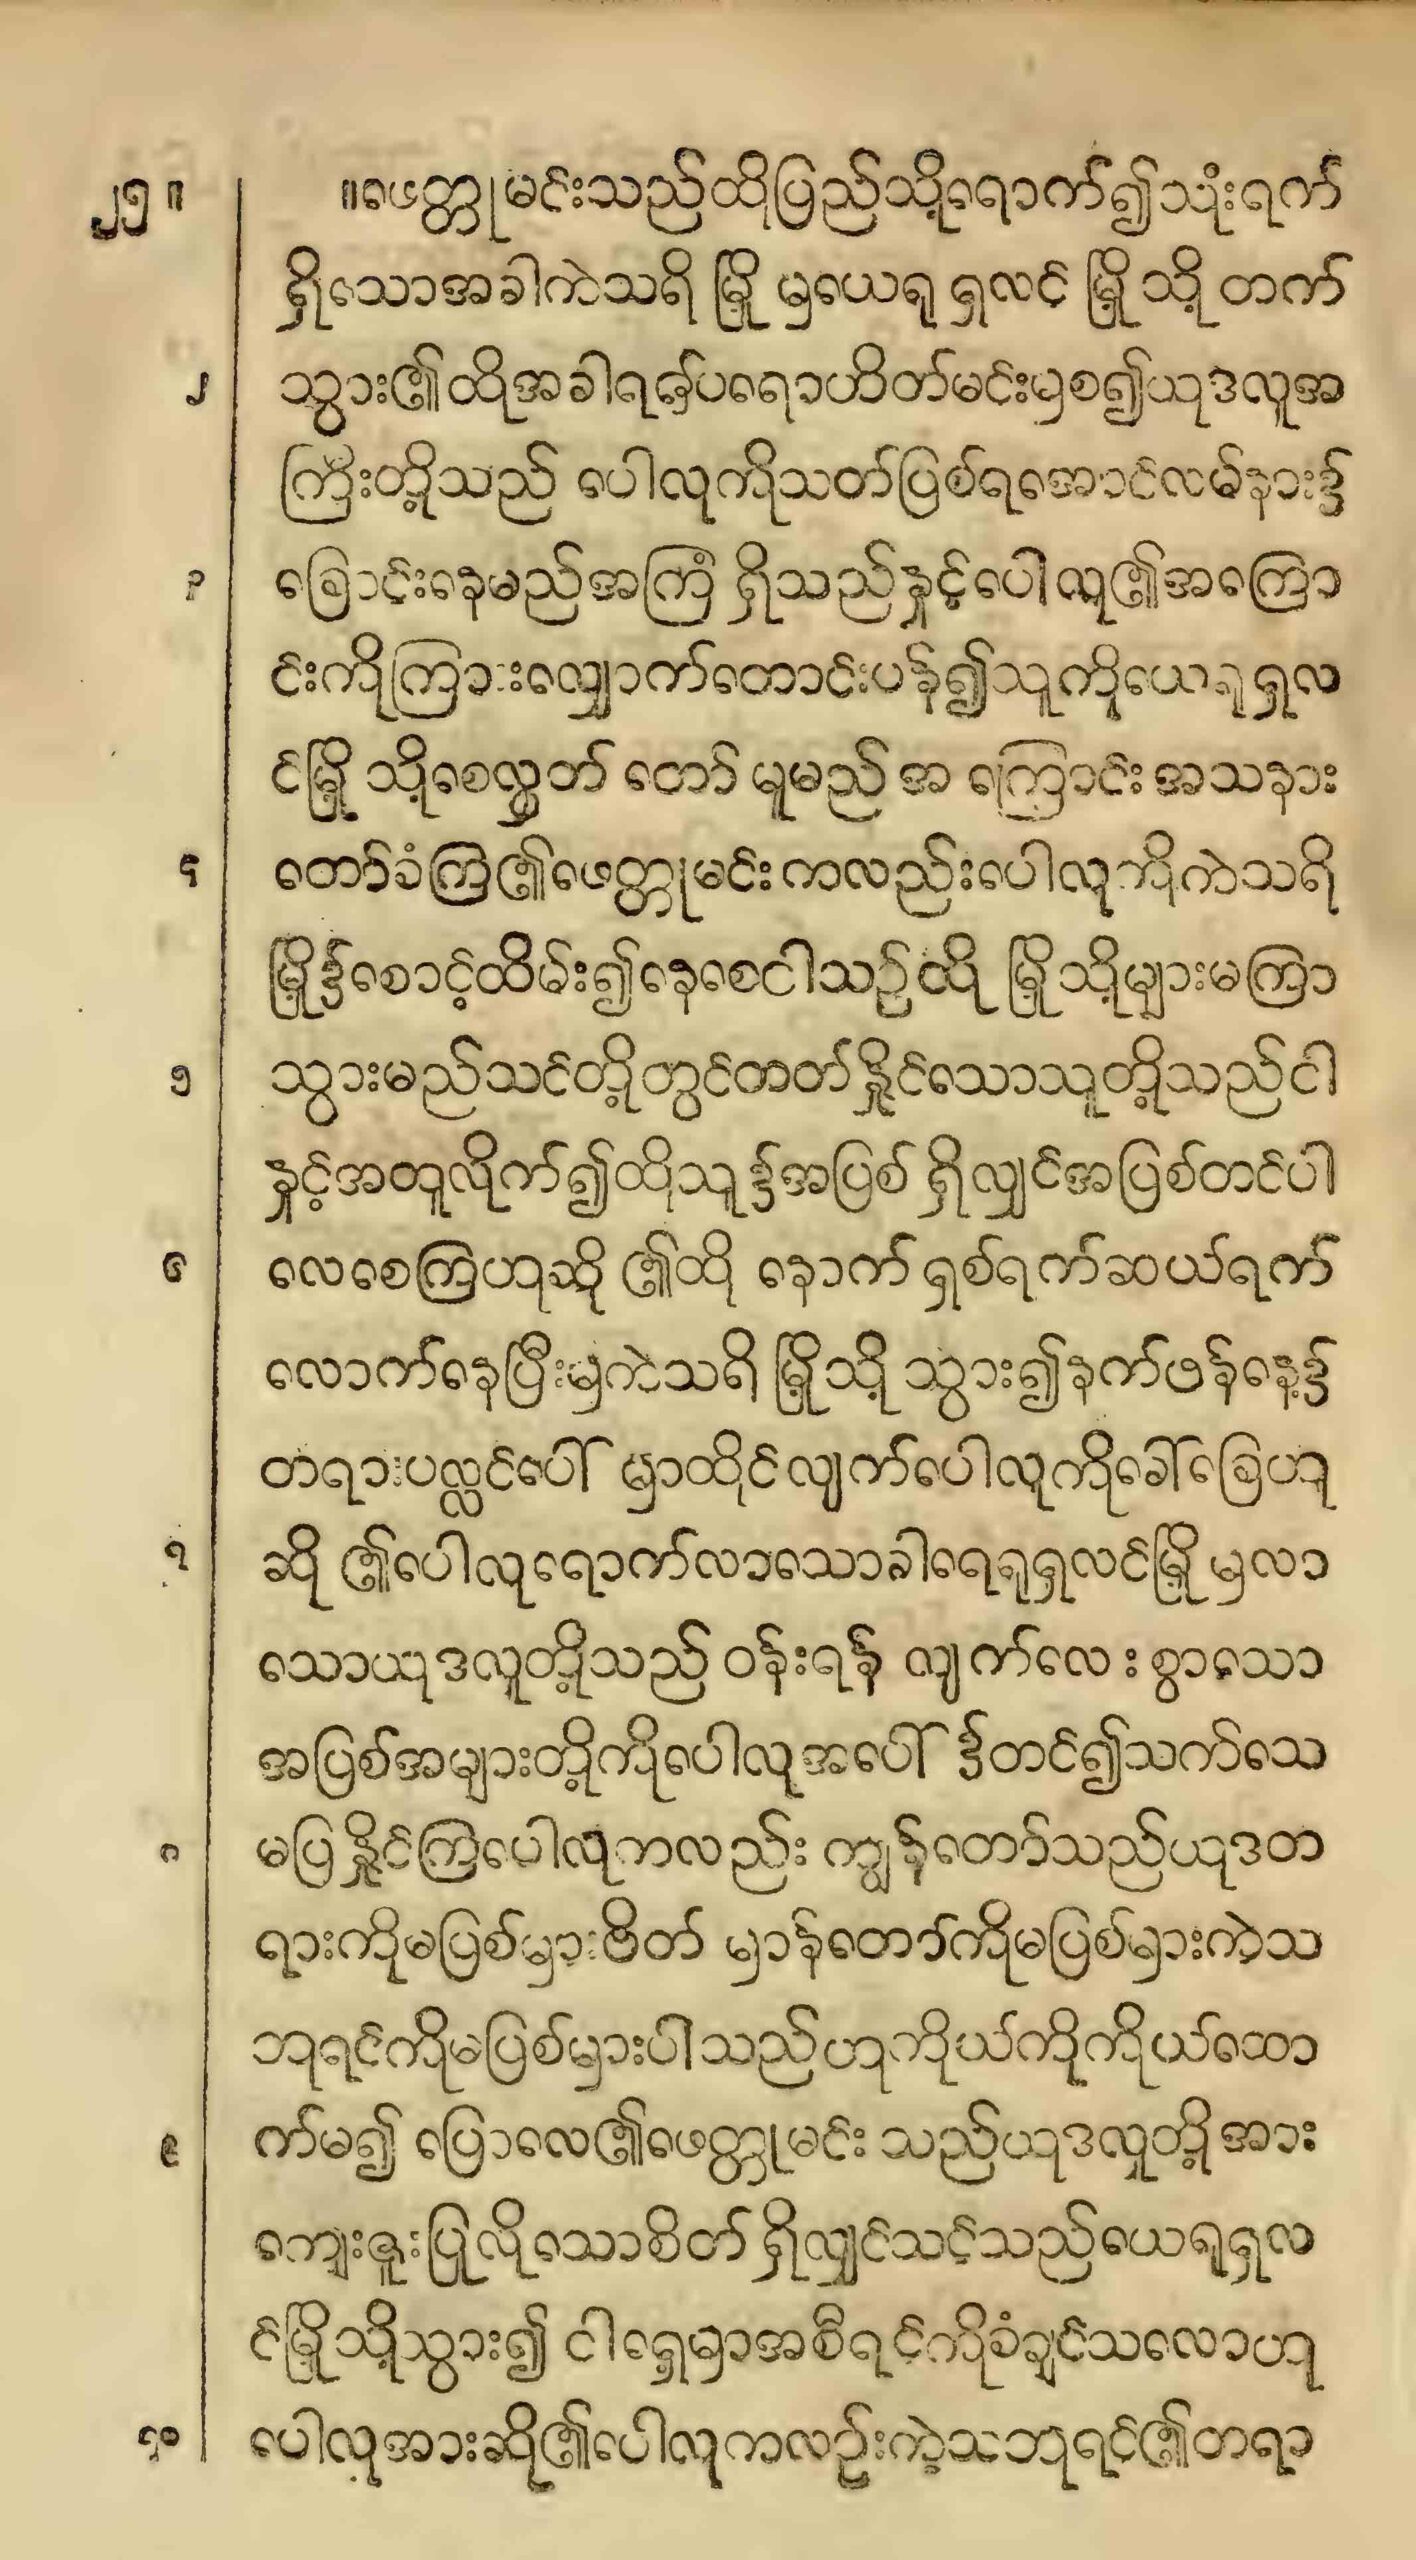 ၂၅။ ။ဖေတ္တုမင်းသည်ထိုပြည်သို့ရောက်၍သုံးရက်
ရှိသောအခါကဲသရိမြို့မှယေရုရှလင်မြို့သို့တက်
၂ သွား၏ထိုအခါရဟန်ပရောဟိတ်မင်းမှစ၍ယုဒလူအ
ကြီးတို့သည်ပေါလုကိုသတ်ပြစ်ရအောင်လမ်နား၌
၃ ခြောင့်းနေမည်အကြံရှိသည်နှင့်ပေါလု၏အကြော
င်းကိုကြားလျှောက်တောင်းပန်၍သူကိုယေရုရှလ
င်မြို့သို့စေလွှတ်တော်မူမည်အကြောင်းအသနား
၄ တော်ခံကြ၏ဖေတ္တုမင်းကလည်းပေါလုကိုကဲသရိ
မြို့၌စောင့်ထိမ်း၍နေစေငါသည်ထိုမြို့သို့များမကြာ
၅ သွားမည်သင်တို့တွင်တတ်နှိုင်သောသူတို့သည်ငါ
နှင့်အတူလိုက်၍ထိုသူ၌အပြစ်ရှိလျှင်အပြစ်တင်ပါ
၆ လေစေကြဟုဆို၏ထိုနောက်ရှစ်ရက်ဆယ်ရက်
လောက်နေပြီးမှကဲသရိမြို့သို့သွား၍နက်ဖန်နေ့၌
တရားပလ္လင်ပေါ်မှာထိုင်လျက်ပေါလုကိုခေါ်ခြေဟု
၇ ဆို၏ပေါလုရောက်လာသောခါရေရုရှလင်မြို့မှလာ
သောယုဒလူတို့သည်ဝန်းရန်လျက်လေးစွာသော
အပြစ်အများတို့ကိုပေါလုအပေါ်၌တင်၍သက်သေ
၈ မပြနှိုင်ကြပေါလုကလည်းကျွန်တော်သည်ယုဒတ
ရားကိုမပြစ်မှားဗိတ်မှာန်တော်ကိုမပြစ်မှားကဲသ
ဘုရင်ကိုမပြစ်မှားပါသည်ဟုကိုယ်ကိုကိုယ်ထော
၉ က်မ၍ပြောလေ၏ဖေတ္တုမင်းသည်ယုဒလူတို့အား
ကျေးဇူးပြုလိုသောစိတ်ရှိလျှင်သင့်သည်ယေရုရှလ
င်မြို့သို့သွား၍ငါရှေ့မှာအစီရင်ကိုခံချင်သလောဟု
၁၀ ပေါလုအားဆို၏ပေါလုကလည်းကဲ့သဘုရင်၏တရာ